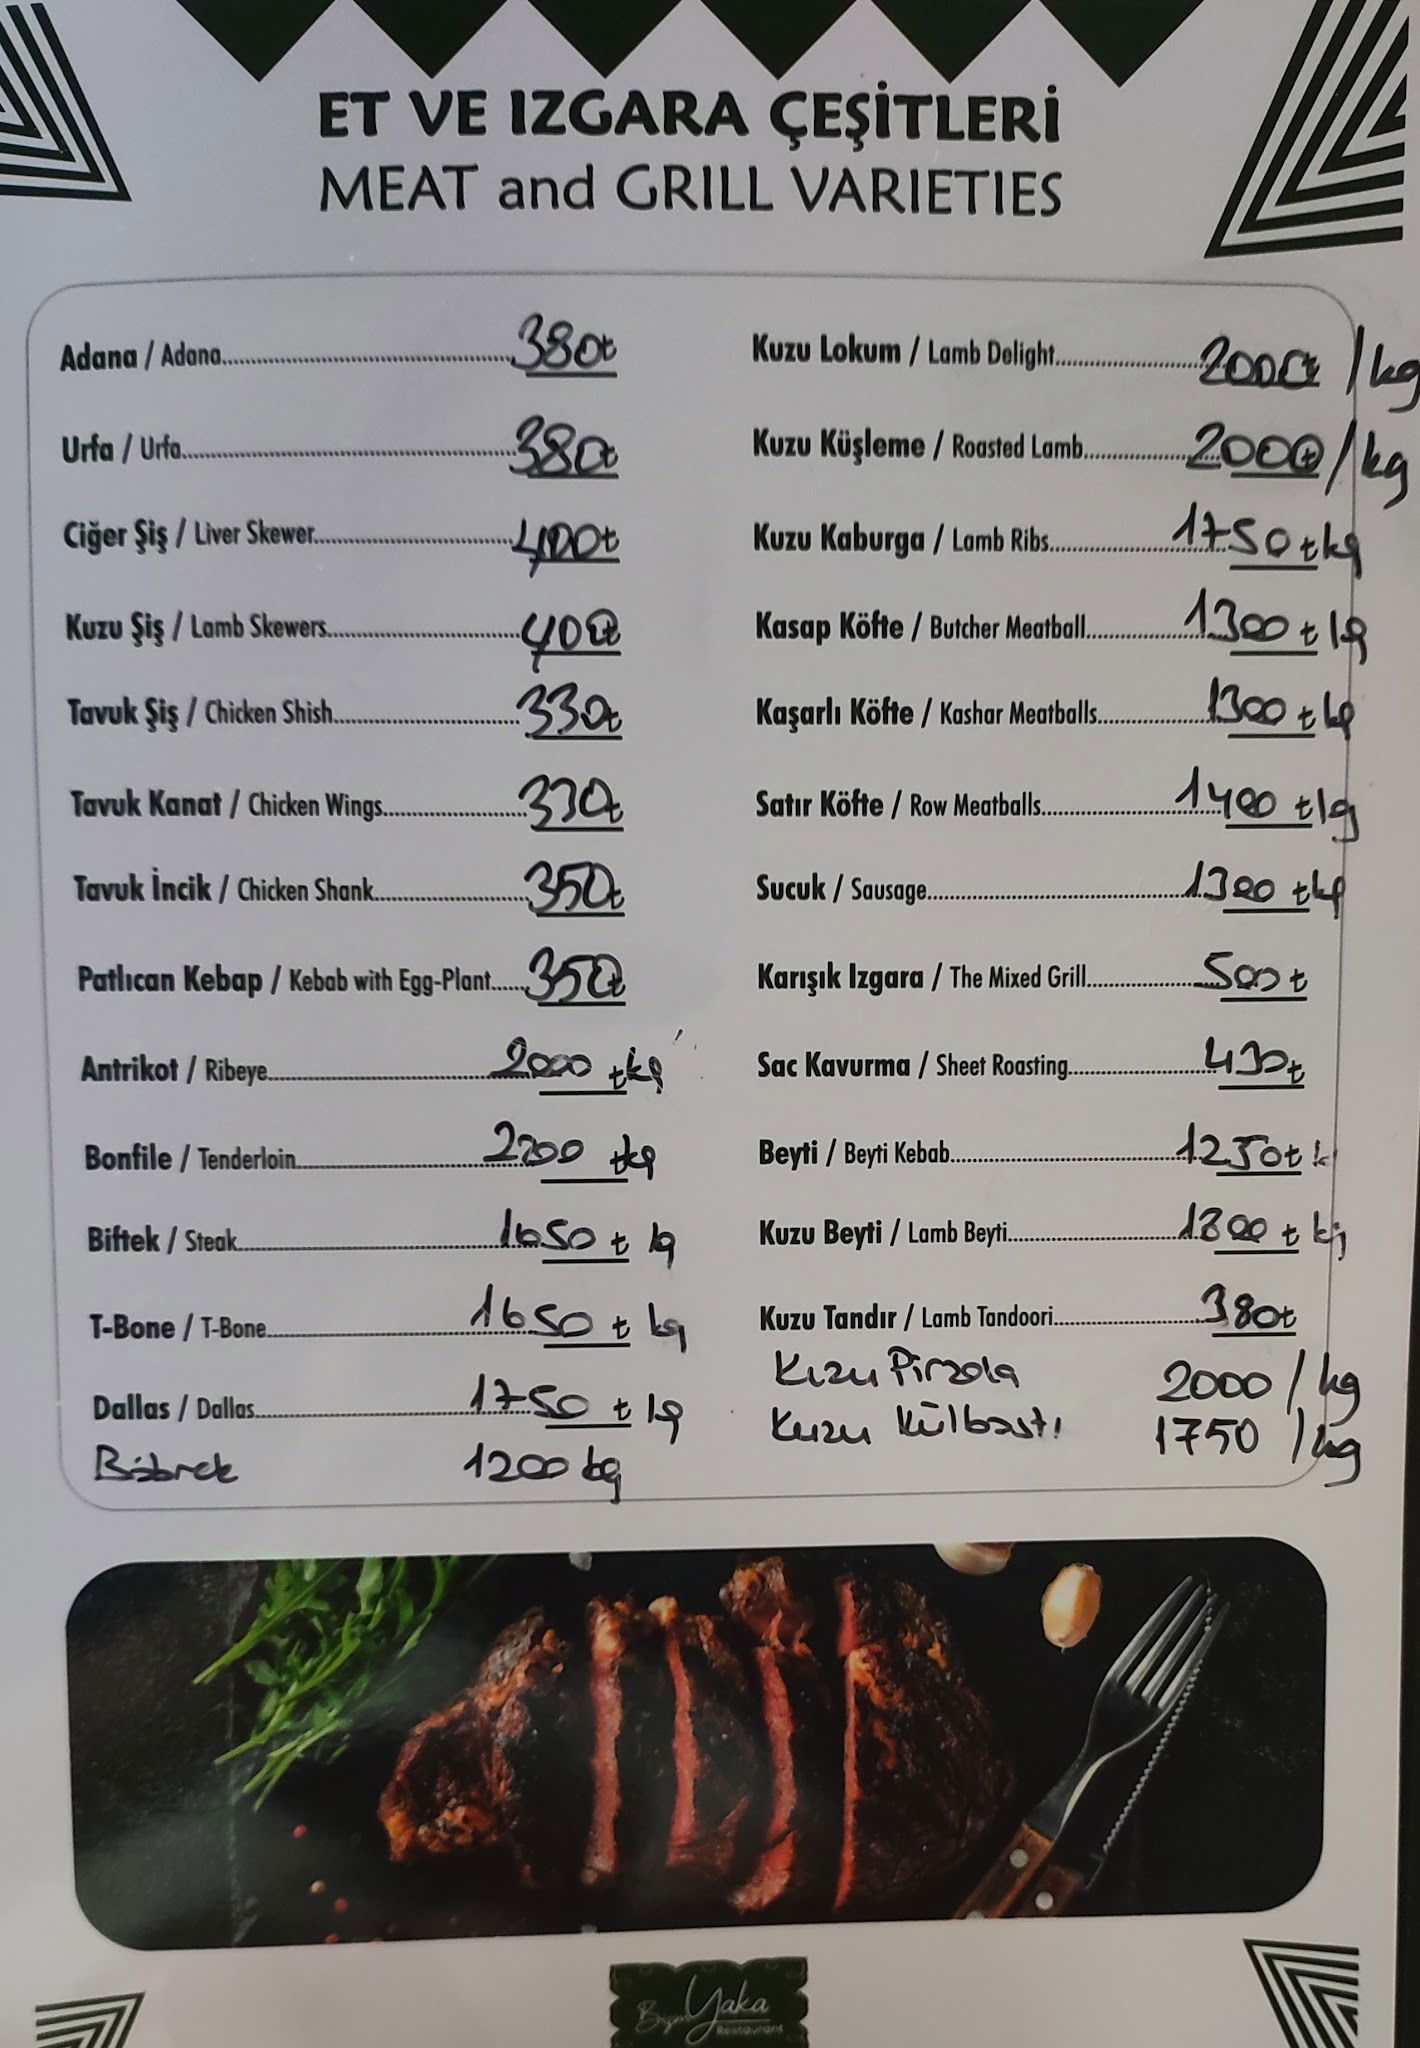 ET VE IZGARA ÇEŞİTLERİ
MEAT and GRILL VARIETIES
Adana / Adana 380₺
Urfa / Urfa 380₺
Ciğer Şiş / Liver Skewer 400₺
Kuzu Şiş / Lamb Skewers 400₺
Tavuk Şiş / Chicken Shish 330₺
Tavuk Kanat / Chicken Wings 330₺
Tavuk İncik / Chicken Shank 350₺
Patlıcan Kebap / Kebab with Egg-Plant 350₺
Antrikot / Ribeye 2000 ₺ kg
Bonfile / Tenderloin 2200 ₺ kg
Biftek / Steak 1650 ₺ kg
T-Bone / T-Bone 1650 ₺ kg
Dallas / Dallas 1750 ₺ kg
Böbrek 1200 kg
Kuzu Lokum / Lamb Delight 2000₺ /kg
Kuzu Küşleme / Roasted Lamb 2000₺ /kg
Kuzu Kaburga / Lamb Ribs 1750 ₺ kg
Kasap Köfte / Butcher Meatball 1300 ₺ kg
Kaşarlı Köfte / Kashar Meatballs 1300 ₺ kg
Satır Köfte / Row Meatballs 1400 ₺ kg
Sucuk / Sausage 1300 ₺ kg
Karışık Izgara / The Mixed Grill 500 ₺
Sac Kavurma / Sheet Roasting 430₺
Beyti / Beyti Kebab 1250₺ k
Kuzu Beyti / Lamb Beyti 1300 ₺ kg
Kuzu Tandır / Lamb Tandoori 380₺
Kuzu Pirzola 2000 /kg
Kuzu Külbastı 1750 /kg
Yaka
Restaurant